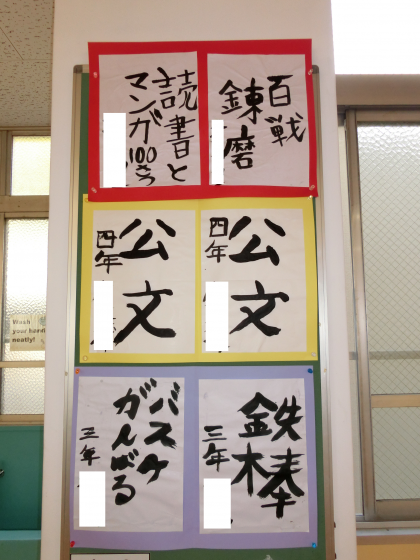 百戦
錬磨
読書と
マンガ100さつ
公文
四年
公文
四年
鉄棒
三年
バスケ
がんばる
三年
Wash
your hands
neatly!